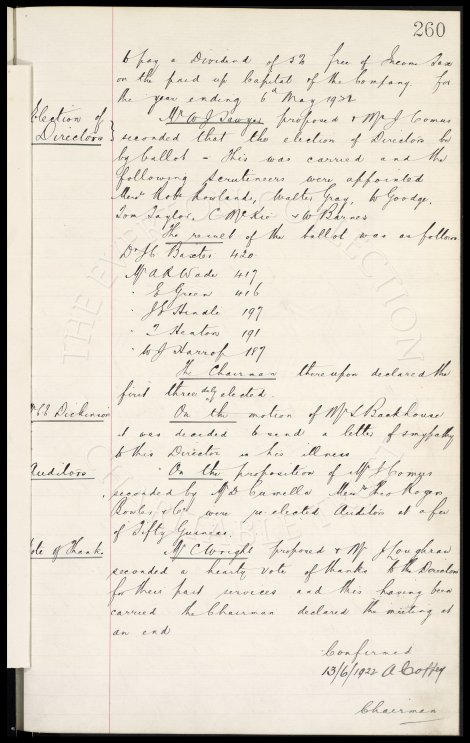 260
to pay a Dividend of 5% free of Income Tax
on the paid up Capital of the Company for
the year ending 6th May 1922
Election of
Directors
Mr W J Sawyer proposed & Mr J Comus
seconded that the election of Directors be
by ballot – This was carried and the
following Scrutineers were appointed
Messrs Robt Rowlands, Walter Gray, W Goodge,
Tom Taylor, C McKie & W Barnes
The result of the ballot was as follows
Dr J C Baxter 420
Mr A R Wade 417
" E Green 416
" 197
" T Heaton 191
" W J Harrop 187
The Chairman thereupon declared the
first three duly elected.
Dickinson
On the motion of Mr S Backhouse
it was decided to send a letter of sympathy
to this Director in his illness
Auditors
On the proposition of Mr J Comus
seconded by Mr D Messrs Theo Rogers
Bowler & Co were re-elected Auditors at a fee
of Fifty Guineas.
Vote of Thanks
Mr C Wright proposed & Mr J Loughran
seconded a hearty vote of thanks to the Directors
for their past services and this having been
carried the Chairman declared the meeting at
an end
Confirmed
13/6/1922 A Coffey
Chairman
THE EVERTON COLLECTION